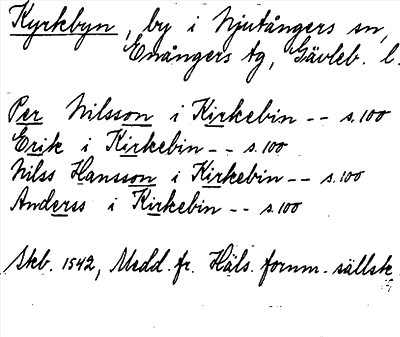 Kyrkbyn, by i Njutångers sn,
Enångers tg, Gävleb. l.
Per Nilsson i Kirkebin -- s. 100
Erik i Kirkebin -- s. 100
Nilss Hansson i Kirkebin -- s. 100
Anderss i Kirkebin -- s. 100
Skb. 1542, Medd. fr. Häls. fornm. sällsk.